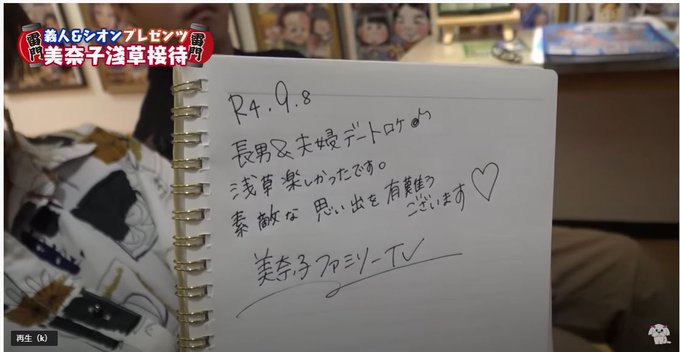 雷門
義人&シオンプレゼンツ
美奈子淺草接待
雷門
R4.9.8
長男&夫婦デートロケ
浅草楽しかったです。
素敵な思い出を有難う
ございます♡
美奈子ファミリーTV
再生（k）